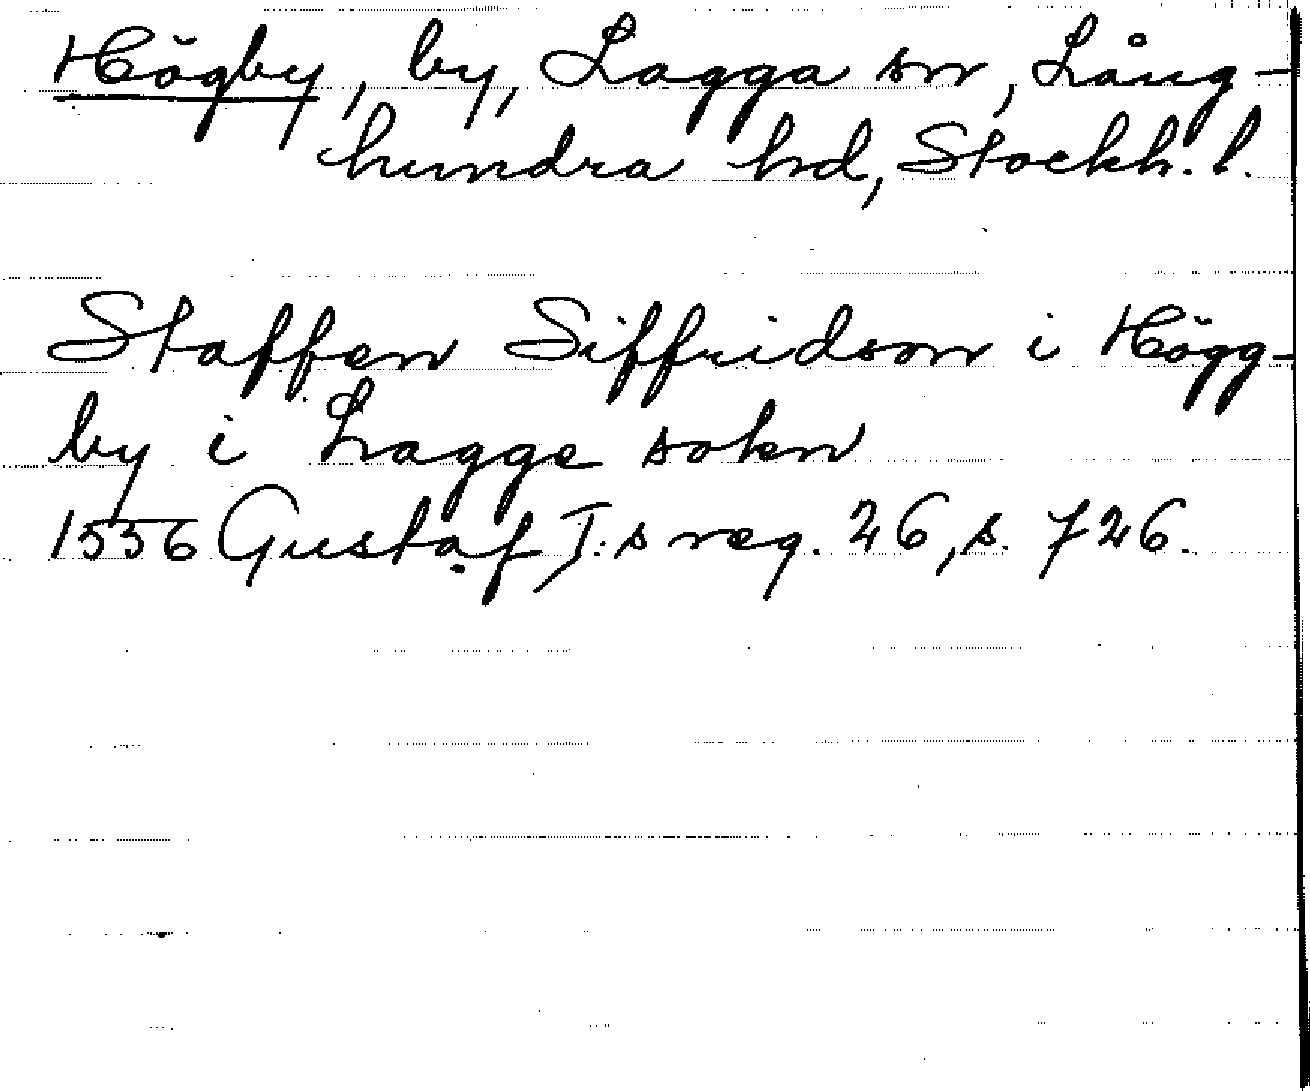 Högby, by, Lagga sn, Lång-
hundra hd, Stockh. l.
Staffen Siffridson i Högg-
by i Lagge soken
1556 Gustaf I:s reg. 26, s. 726.